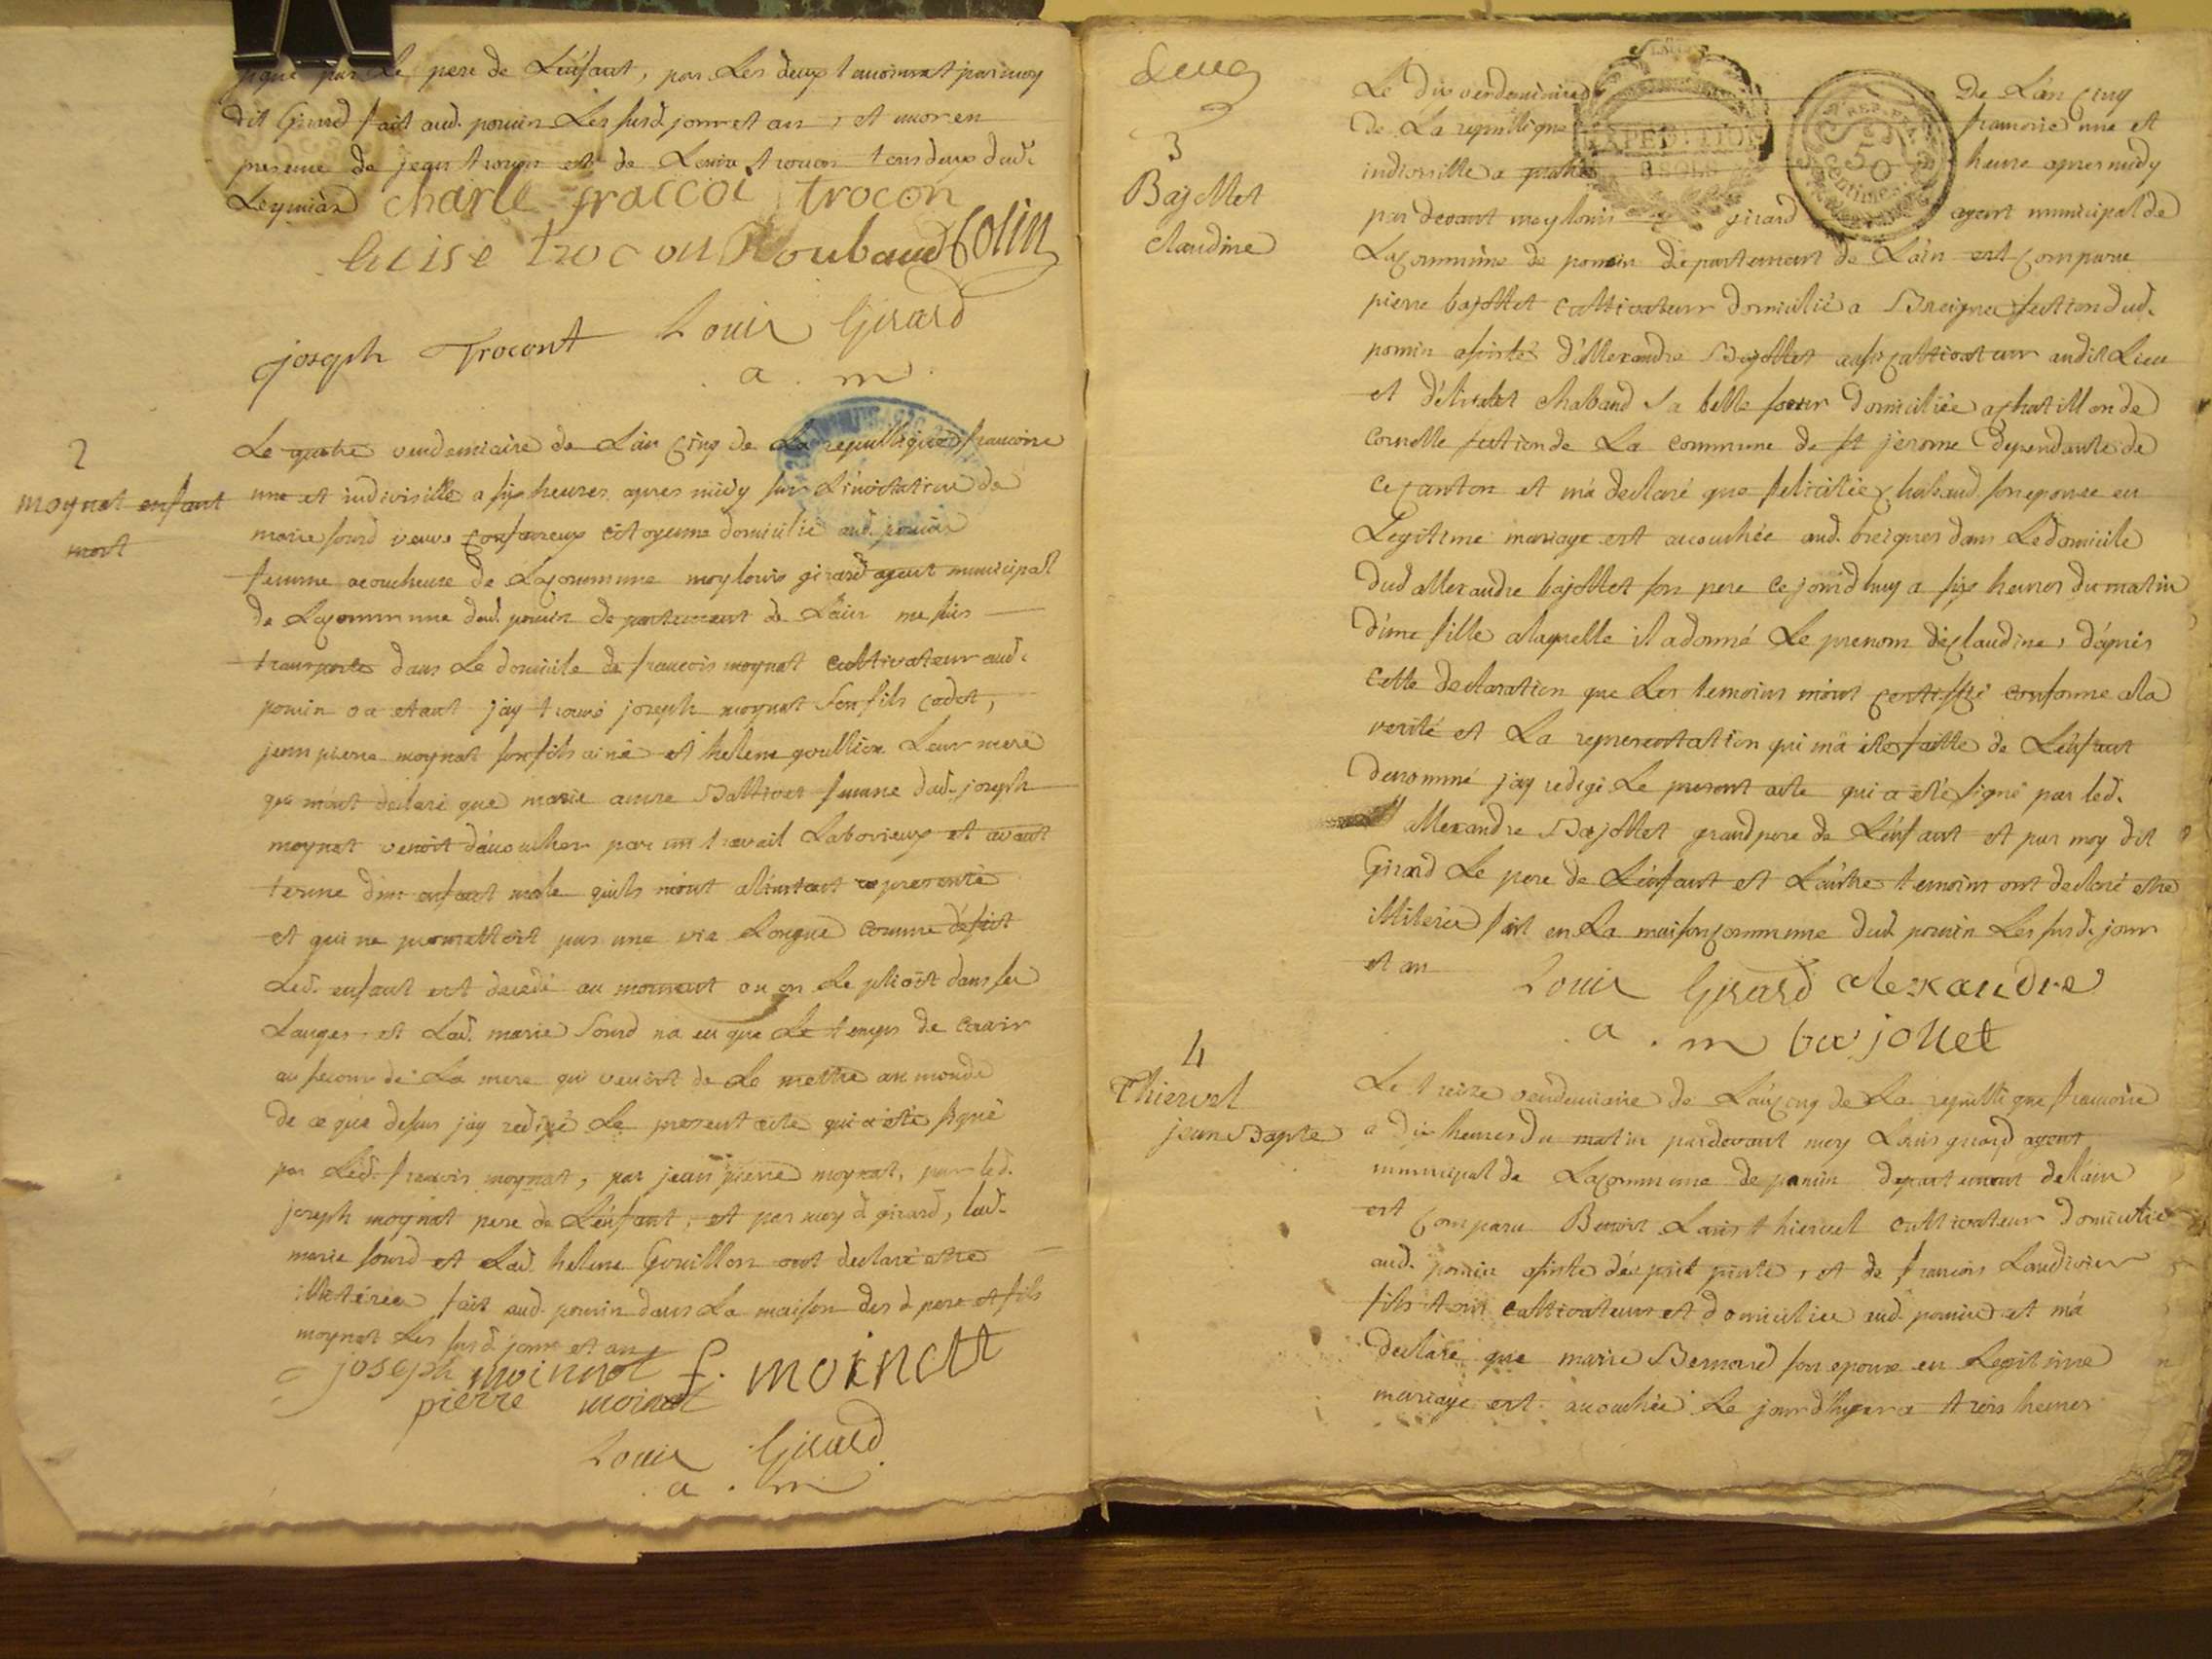 signé par Le pere de L'enfant, par Les deux temoins et par moy
dit Girard fait aud. poncin Les susd. jour et an, et encor en
presence de jean trocon et de Louise trocon tous deux dud.
Leymiat charle fraccoi trocon
luise trocon Roubaud Colin
joseph Trocont Louis Girard
a. m.
2
moynat enfant
mort
Le quatre vendemiaire de L'an cinq de La republique francoise
une et indivisille a six heures apres midy sur L'invitation de
marie sourd veuve citoyenne domicilié aud. poncin
femme acoucheuse de La commune moy louis girard agent municipal
de La commune dud. poncin departement de L'ain me suis
transporté dans Le domicile de francois moynat cultivateur aud.
poncin ou etant j'ay trouvé joseph moynat son fils cadet,
jean pierre moynat son fils ainé et helene goullion Leur mere
que m'ont declaré que marie femme dud. joseph
moynat venoit d'acoucher par un travail Laborieux et avant
terme d'un enfant male qu'ils m'ont alinstant representé
et qui ne promettoit pas une vie Longue comme de fait
Led. enfant est decedé au moment ou on Le plioit dans ses
Langes et Lad. marie Sourd n'a eu que Le temps de
au secours de La mere qui venoit de Le mettre au monde
de ce que desus j'ay redigé Le present acte qui a été signé
par Led. francois moynat, par jean pierre moynat, par led.
joseph moynat pere de L'enfant, et par moy d. girard, lad.
marie sourd et Lad. helene Goullion ont declaré etre
illiterées fait aud. poncin dans La maison des d. pere et fils
moynat Les susd. jour et an
joseph moinnat f. moinatt
pierre moinat
Louis Girard
a. m
deux
3
Bajollet
Claudine
Le dix vendemiaire De L'an cinq
De La republique francoise une et
indivisille a quatre heure apres midy
par devant moy louis girard agent municipal de
La commune de poncin departement de L'ain est comparu
pierre bajollet cultivateur domicilié a Breigne section dud.
poncin assisté d'allexandre Bajollet aussi cultivateur audit Lieu
et d'elizabet chaband Sa belle soeur domiciliée a chatillon de
cornelle section de La commune de st jerome dependante de
ce canton et m'a declaré que felicitée chaband son epouse en
Legitime mariage est accouchée aud. breignes dans Le domicile
dud allexandre bajollet son pere ce jourd'huy a six heures du matin
d'une fille alaquelle il a donné Le prenom de claudine, d'apres
cette declaration que Les temoins m'ont certiffié conforme ala
verité et La representation qui m'a été faitte de L'enfant
denommé j'ay redigé Le present acte qui a été signé par led.
allexandre Bajollet grand pere de L'enfant et par moy dit
Girard Le pere de L'enfant et L'autre temoins ont declaré etre
illiteré fait en La maison commune dud. poncin Les susd. jour
et an
Louis Girard alexandre
a. m bajollet
4
Thiervel
jean Bapte
Le treize vendemiaire de L'an cinq de La republique francoise
a dix heures du matin pardevant moy Louis girard agent
municipal de La commune de poncin departement de l'ain
est comparu Benoit Louis thiervel cultivateur domicilié
aud. poncin assisté d'esprit, et de francois
fils tous cultivateurs et domiciliés aud. poncin et m'a
declaré que marie Bernard son epouse en Legitime
mariage est accouchée Le jour d'hyer a trois heures
EXPEDITION
8 SOLS
50
centimes